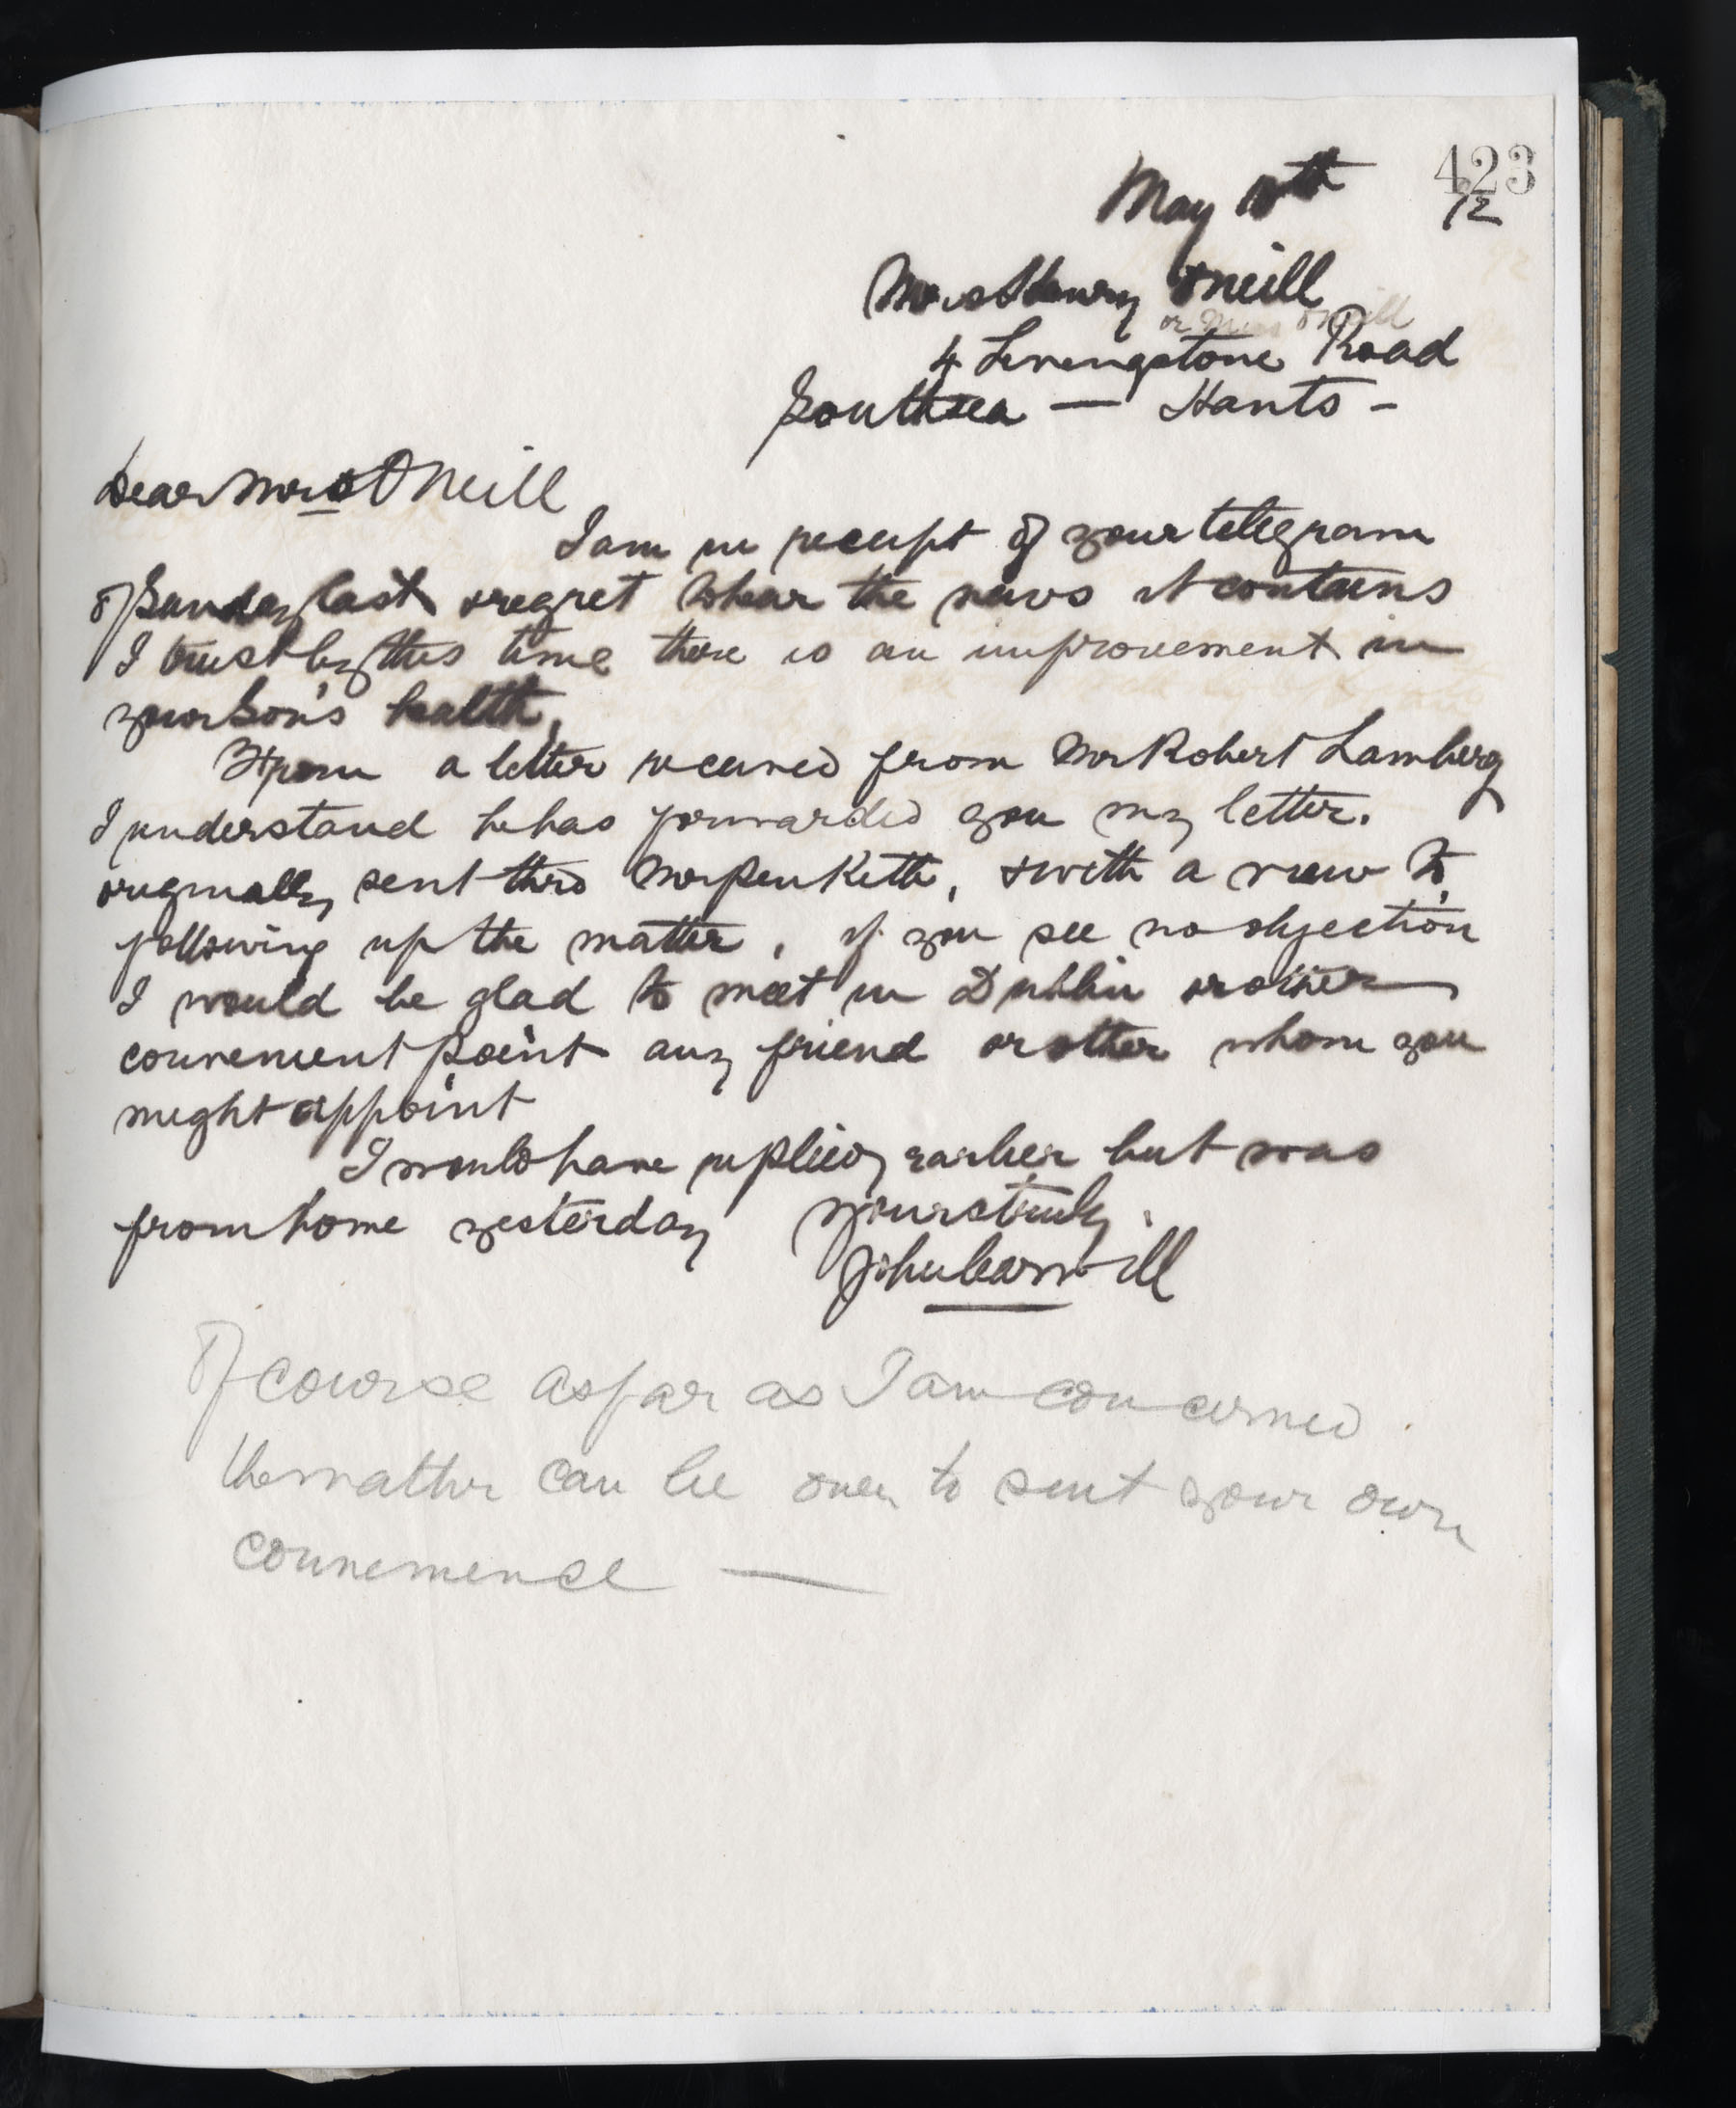 423
May 10th
12
Mrs Henry ONeill
or Miss ONeill
4 Livingstone Road
Southsea — Hants -
Dear Mrs ONeill
I am in receipt of your telegram
of Sunday last & regret to hear the news it contains
I trust by this time there is an improvement in
your Son's health,
From a letter received from Mr Robert Lamberg
I understand he has forwarded you my letter.
originally sent thro Mr Penketh, & with a view to
following up the matter, if you see no objection
I would be glad to meet in Dublin or other
convenient point any friend or other whom you
might appoint
I would have replied earlier but was
from home yesterday Yours truly.
John
Of course as far as I am concerned
the matter can be over to suit your own
convenience —